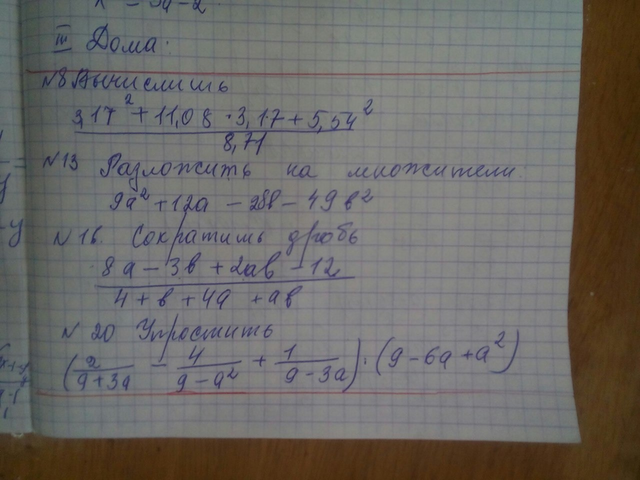 III Дома:
№8 Вычислить
3,17² + 11,08 · 3,17 + 5,54²
8,71
№13 Разложить на множители:
9a² + 12a - 28b - 49b²
№16. Сократить дробь
8a - 3b + 2ab - 12
4 + b + 4a + ab
№ 20 Упростить
(2/(9+3a) - 4/(9-a²) + 1/(9-3a)) · (9-6a+a²)